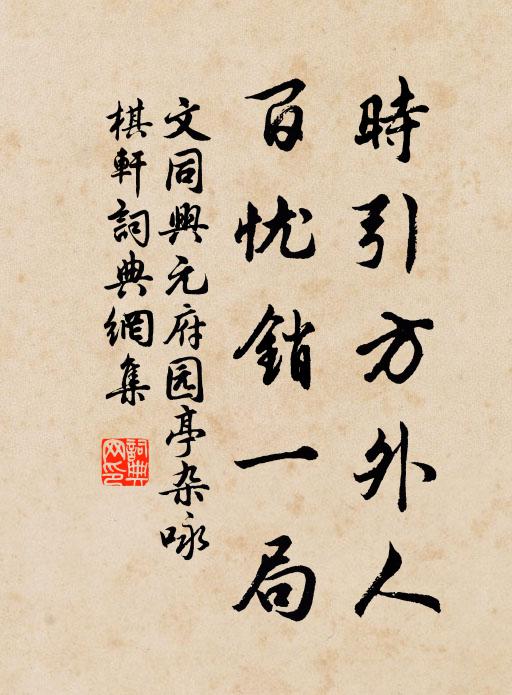 時引方外人
百忧銷一局
文同興元府园亭杂咏
棋軒詞典網集
詞典
网印